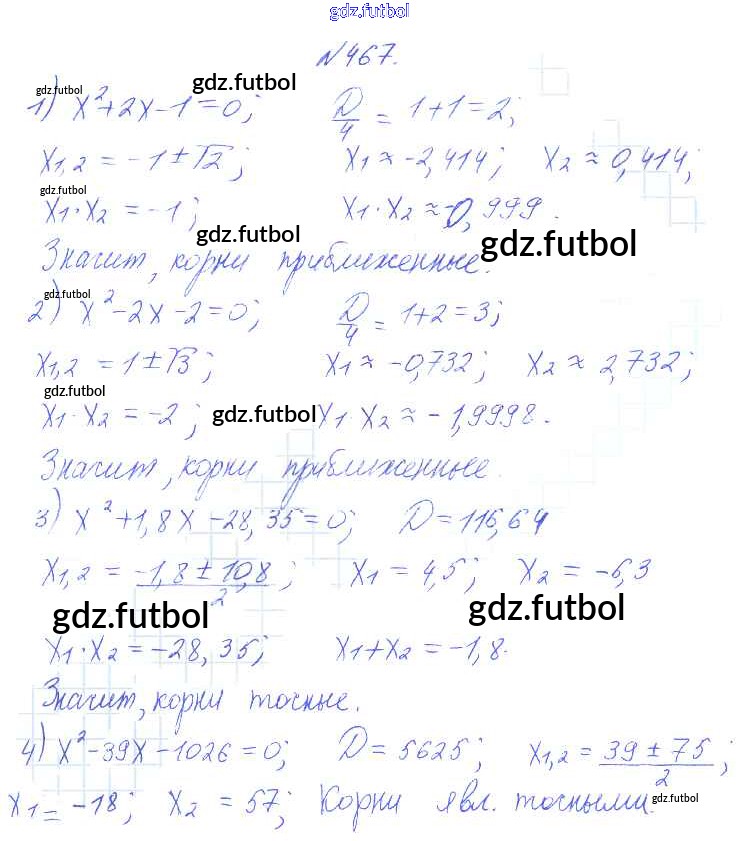 gdz.futbol
№467.
gdz.futbol gdz.futbol
1) x²+2x-1=0; D/4 = 1+1=2;
x₁,₂ = -1±√2; x₁≈-2,414; x₂≈0,414;
gdz.futbol
x₁·x₂ = -1; x₁·x₂≈-0,999.
gdz.futbol gdz.futbol
Значит, корни приближенные.
gdz.futbol
2) x²-2x-2=0; D/4 = 1+2=3;
x₁,₂ = 1±√3; x₁≈-0,732; x₂≈2,732;
gdz.futbol
x₁·x₂ = -2; gdz.futbol x₁ x₂≈-1,9998.
Значит, корни приближенные.
3) x²+1,8x-28,35=0; D=116,64
x₁,₂ = (-1,8±10,8)/2; x₁=4,5; x₂=-6,3
gdz.futbol gdz.futbol
x₁·x₂=-28,35; x₁+x₂=-1,8.
Значит, корни точные.
4) x²-39x-1026=0; D=5625; x₁,₂ = (39±75)/2;
x₁=-18; x₂=57; Корни явл. точными.
gdz.futbol